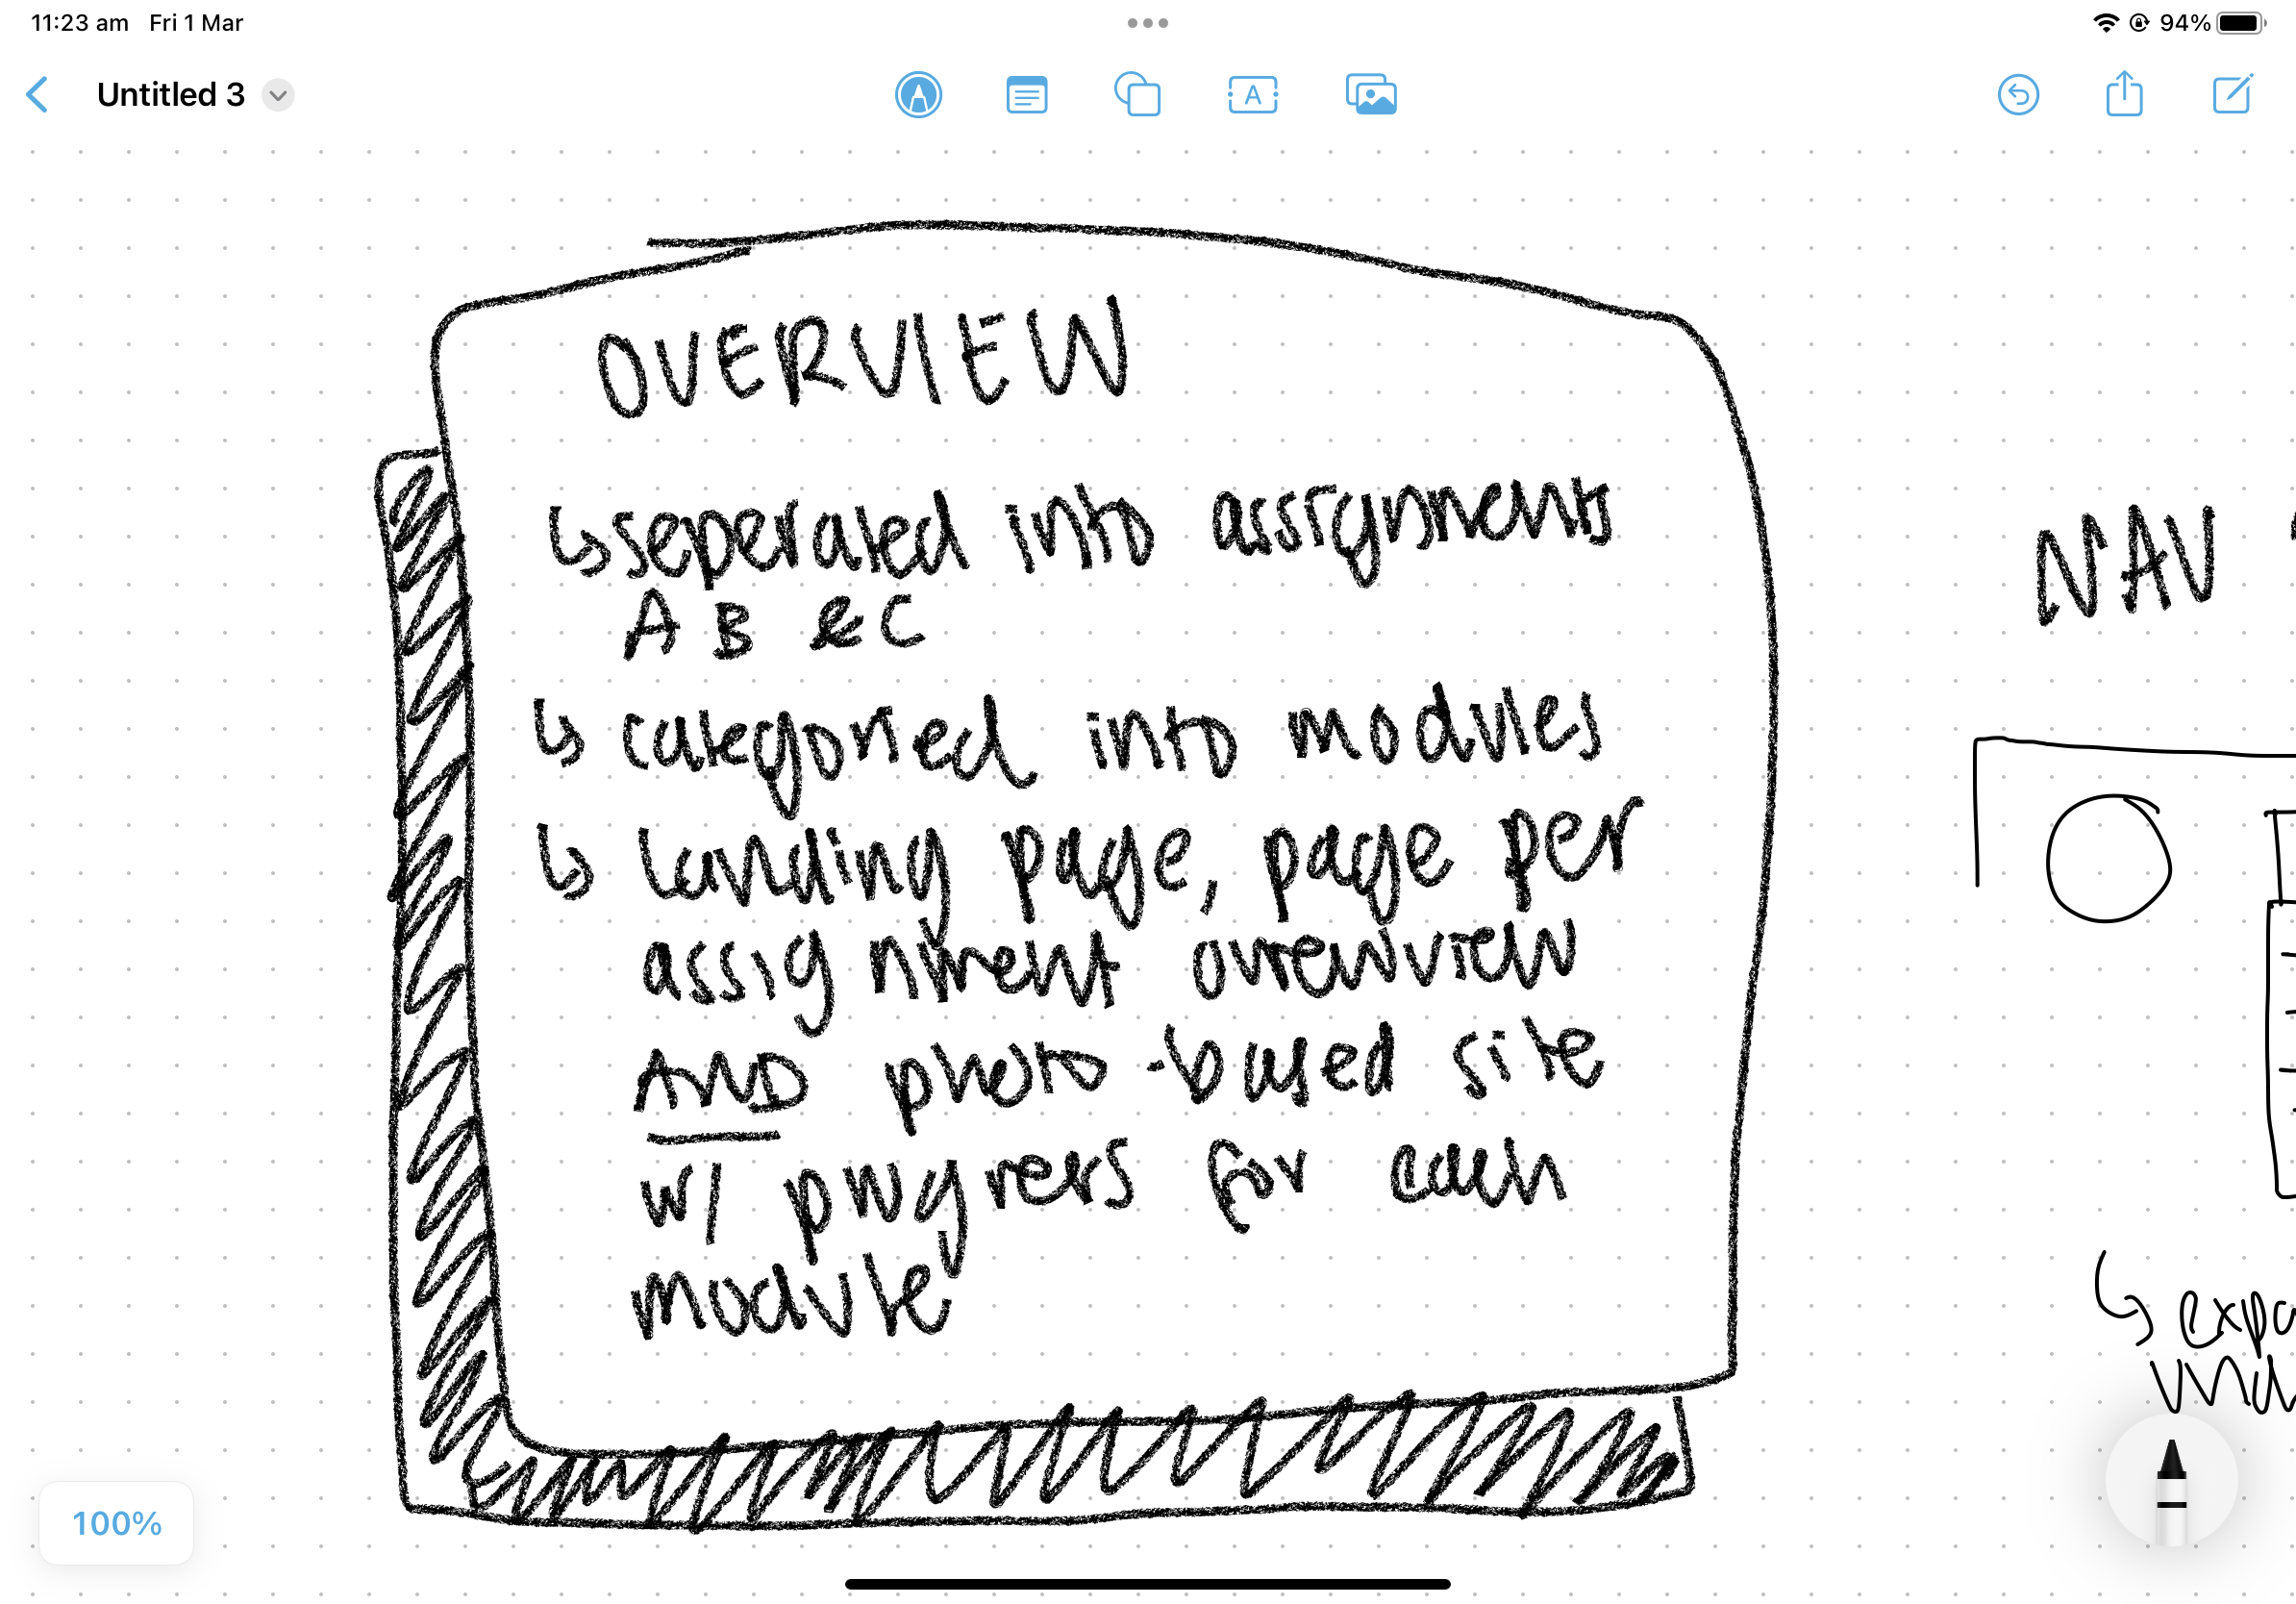 11:23 am Fri 1 Mar
94%
Untitled 3
A
OVERVIEW
↳ seperated into assignments
A B & C
↳ categoried into modules
↳ landing page, page per
assignment overwview
AND photo-based site
w/ progress for each
module
NAV
↳ expa
100%